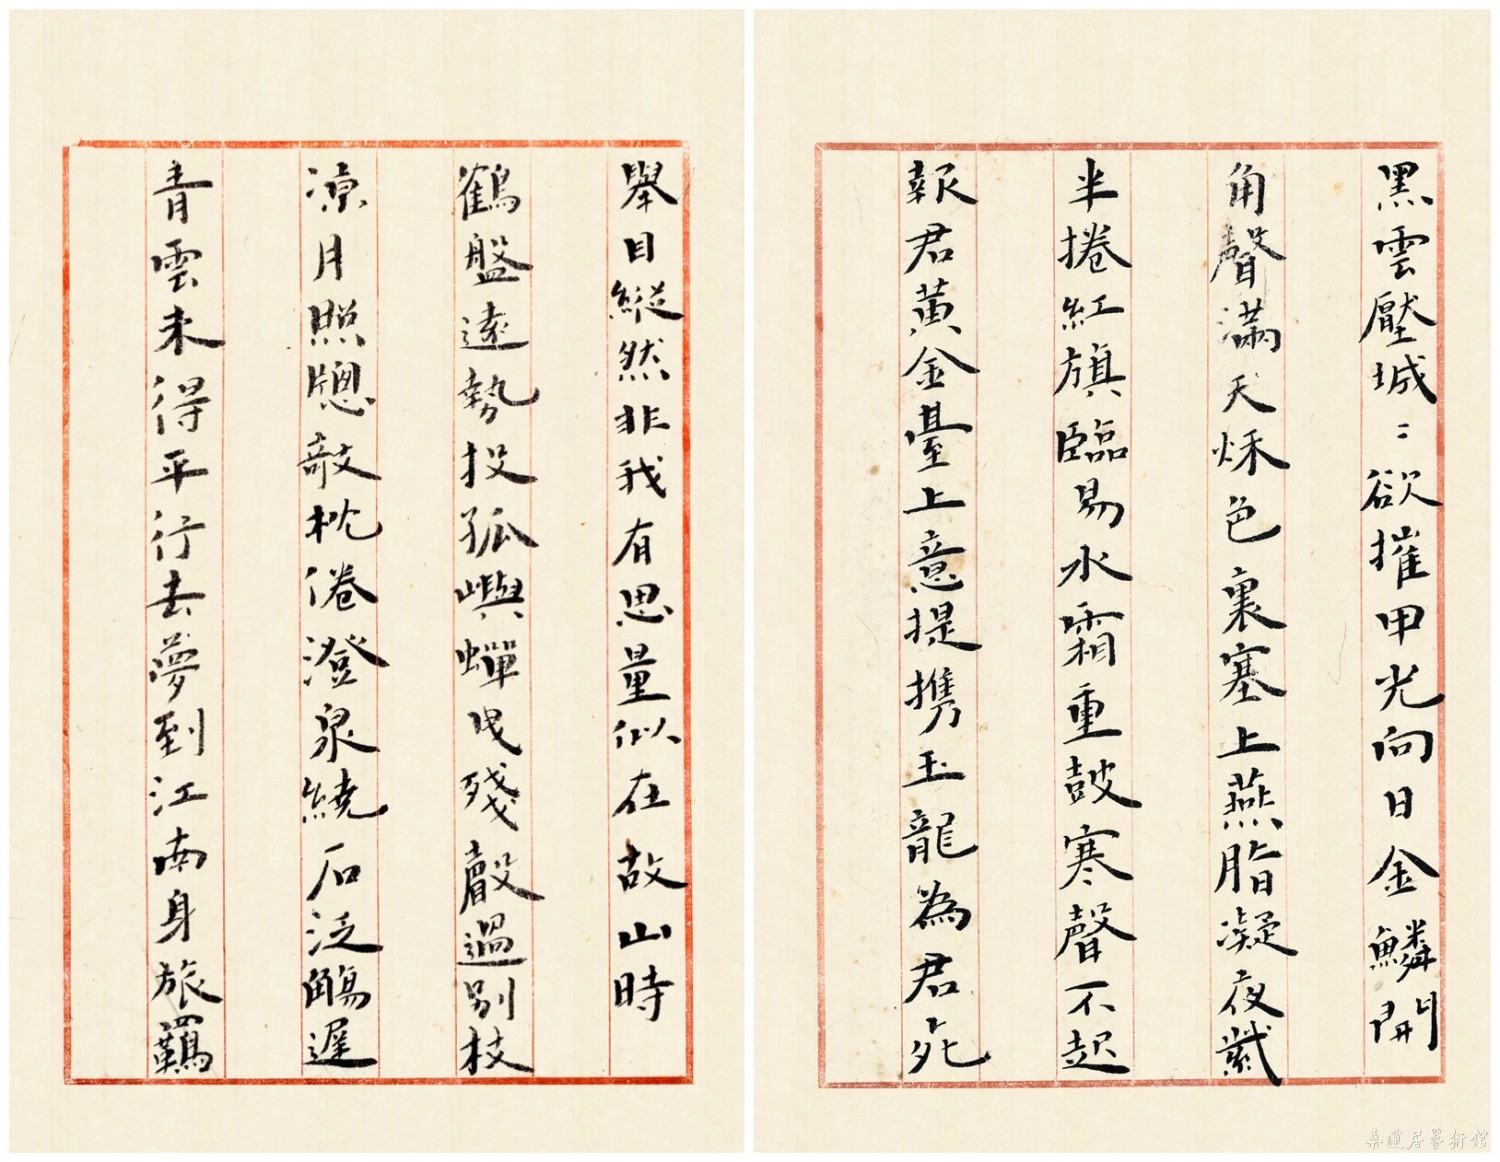 黑雲壓城〻欲摧甲光向日金鱗開
角聲滿天秌色裏塞上燕脂凝夜紫
半捲紅旗臨易水霜重鼓寒聲不起
報君黃金臺上意提携玉龍為君死
舉目縱然非我有思量似在故山時
鶴盤遠勢投孤嶼蟬曳殘聲過別枝
涼月照牕敧枕倦澄泉繞石泛觴遲
青雲未得平行去夢到江南身旅羈
桑蓮居藝術館